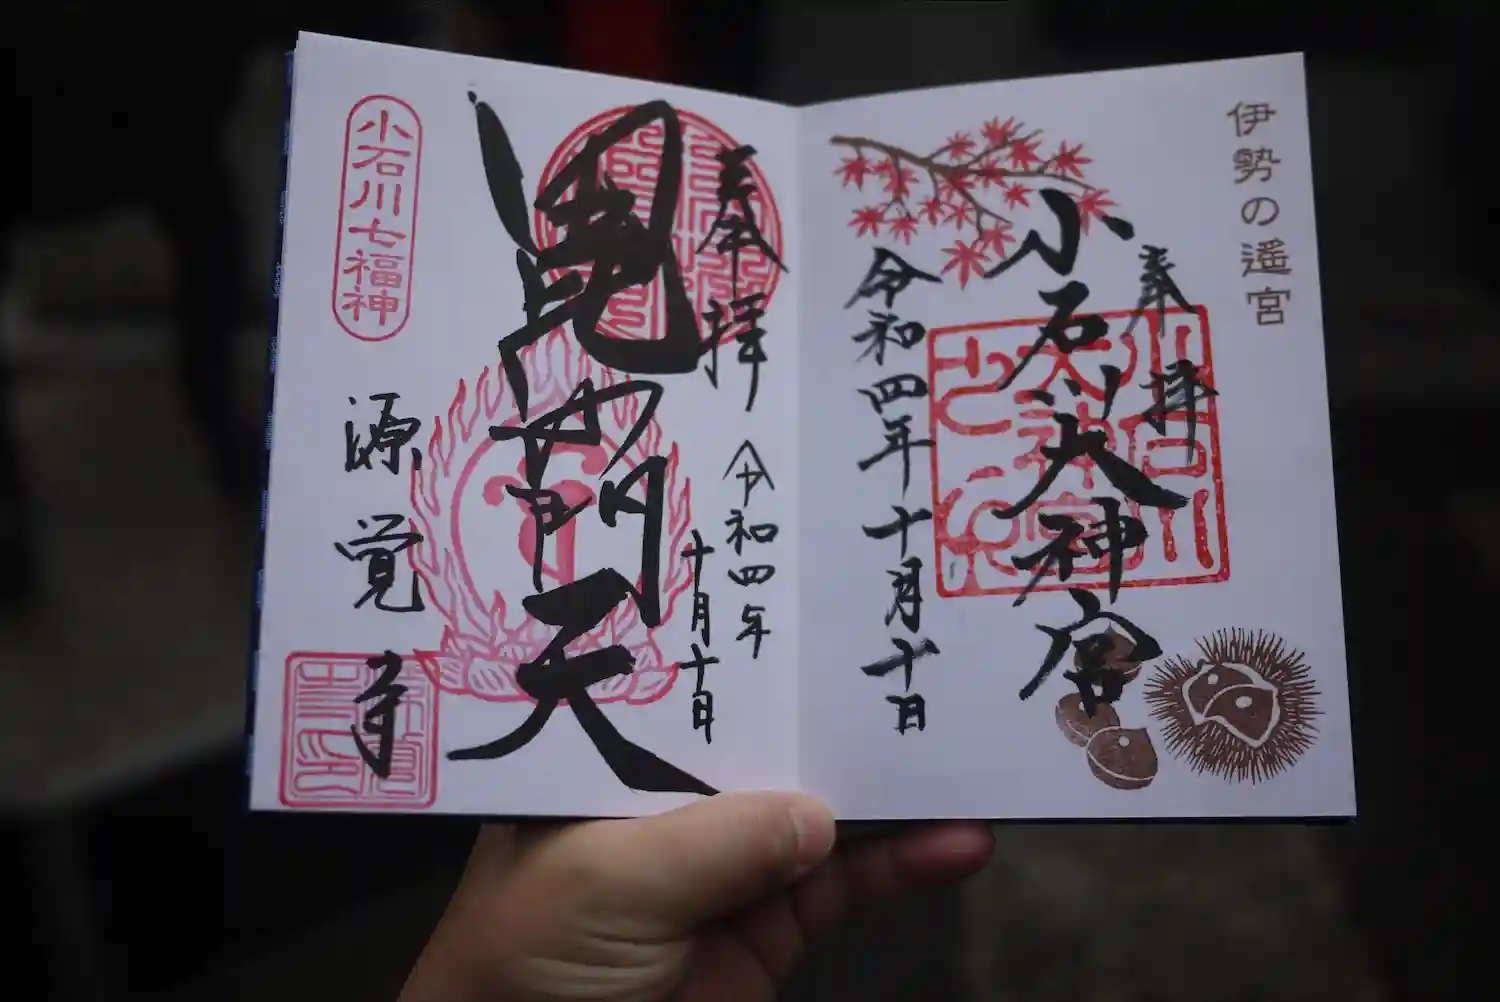 伊勢の遥宮
奉拝
小石川大神宮
令和四年十月十日
奉拝
令和四年
十月十日
毘沙門天
小石川七福神
源覚寺